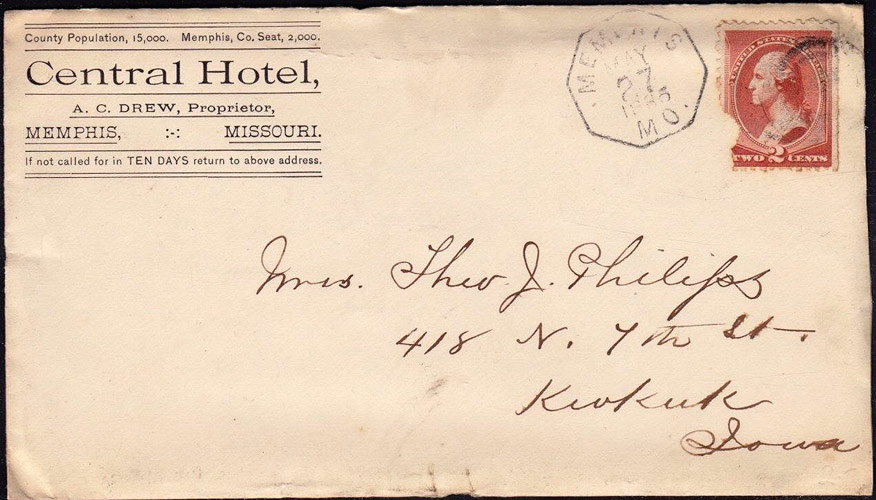 County Population, 15,000. Memphis, Co. Seat, 2,000.
Central Hotel,
A. C. DREW, Proprietor,
MEMPHIS, :-: MISSOURI.
If not called for in TEN DAYS return to above address.
MEMPHIS
MAY
27
MO.
UNITED STATES
TWO 2 CENTS
Mrs. Theo. J. Philips
418 N. 7th St.
Keokuk
Iowa